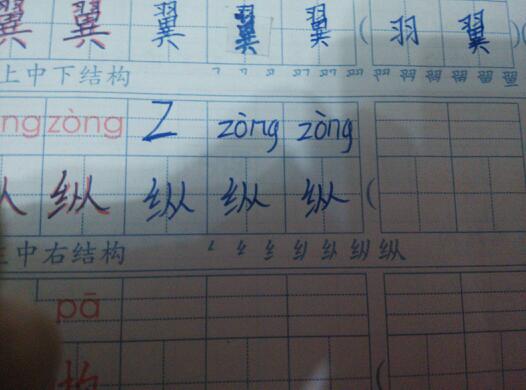 翼 翼 翼 翼 翼 ( 羽 翼 )(
上中下结构
ng zòng Z zòng zòng
纵 纵 纵 纵 纵 (
左中右结构
pā